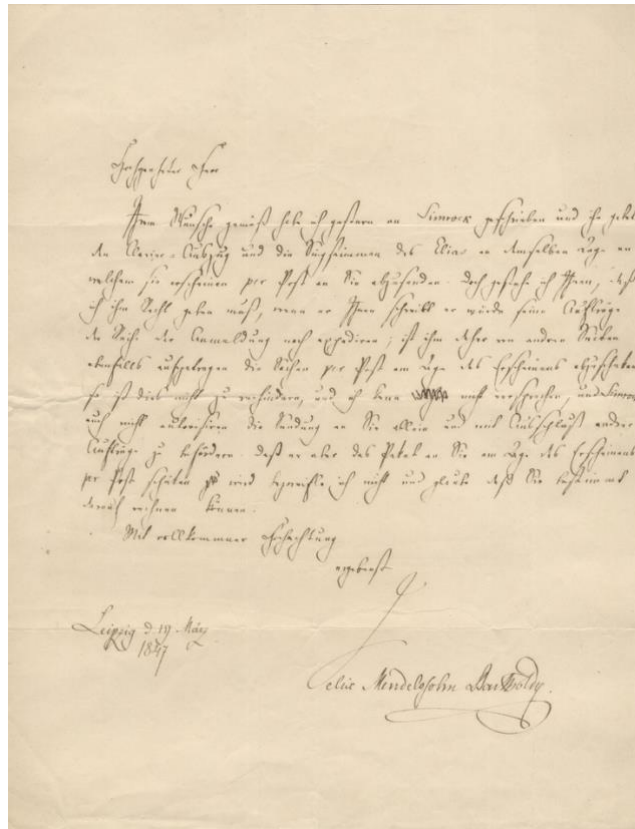 Hochgeehrter Herr
Ihrem Wunsche gemäß habe ich gestern an Simrock geschrieben und ihn gebeten
den Clavier-Auszug und die Singstimmen des Elias an demselben Tage an
welchem sie erscheinen per Post an Sie abzusenden. Doch gestehe ich Ihnen, daß
ich ihm Recht geben muß, wenn er Ihnen schreibt er würde seine Aufträge
der Reihe der Anmeldung nach expediren; ist ihm daher von andren Seiten
ebenfalls aufgetragen die Sachen per Post am Tage des Erscheinens abzuschicken
so ist dies nicht zu verhindern, und ich kann nicht versprechen, und Simrock
auch nicht autorisiren die Sendung an Sie allein und mit Ausschluß andrer
Aufträge zu befördern. Daß er aber das Paket an Sie am Tage des Erscheinens
per Post schicken wird bezweifle ich nicht und glaube daß Sie bestimmt
darauf rechnen können.
Mit vollkommner Hochachtung
ergebenst
Felix Mendelssohn Bartholdy.
Leipzig d. 19 März
1847